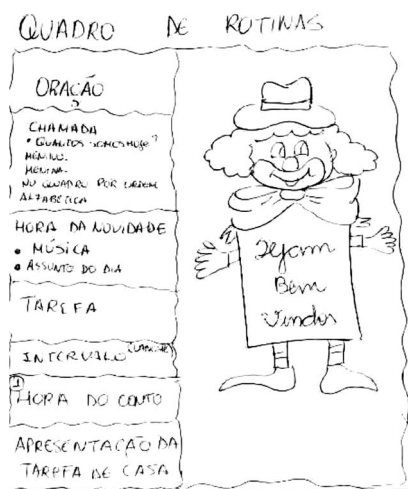 QUADRO DE ROTINAS
ORAÇÃO
CHAMADA
• QUANTOS SOMOS HOJE?
MENINO.
MENINA.
NO QUADRO POR ORDEM
ALFABÉTICA
HORA DA NOVIDADE
• MÚSICA
• ASSUNTO DO DIA
TAREFA
INTERVALO (LANCHE)
HORA DO CONTO
APRESENTAÇÃO DA
TAREFA DE CASA
Sejam
Bem
Vindos